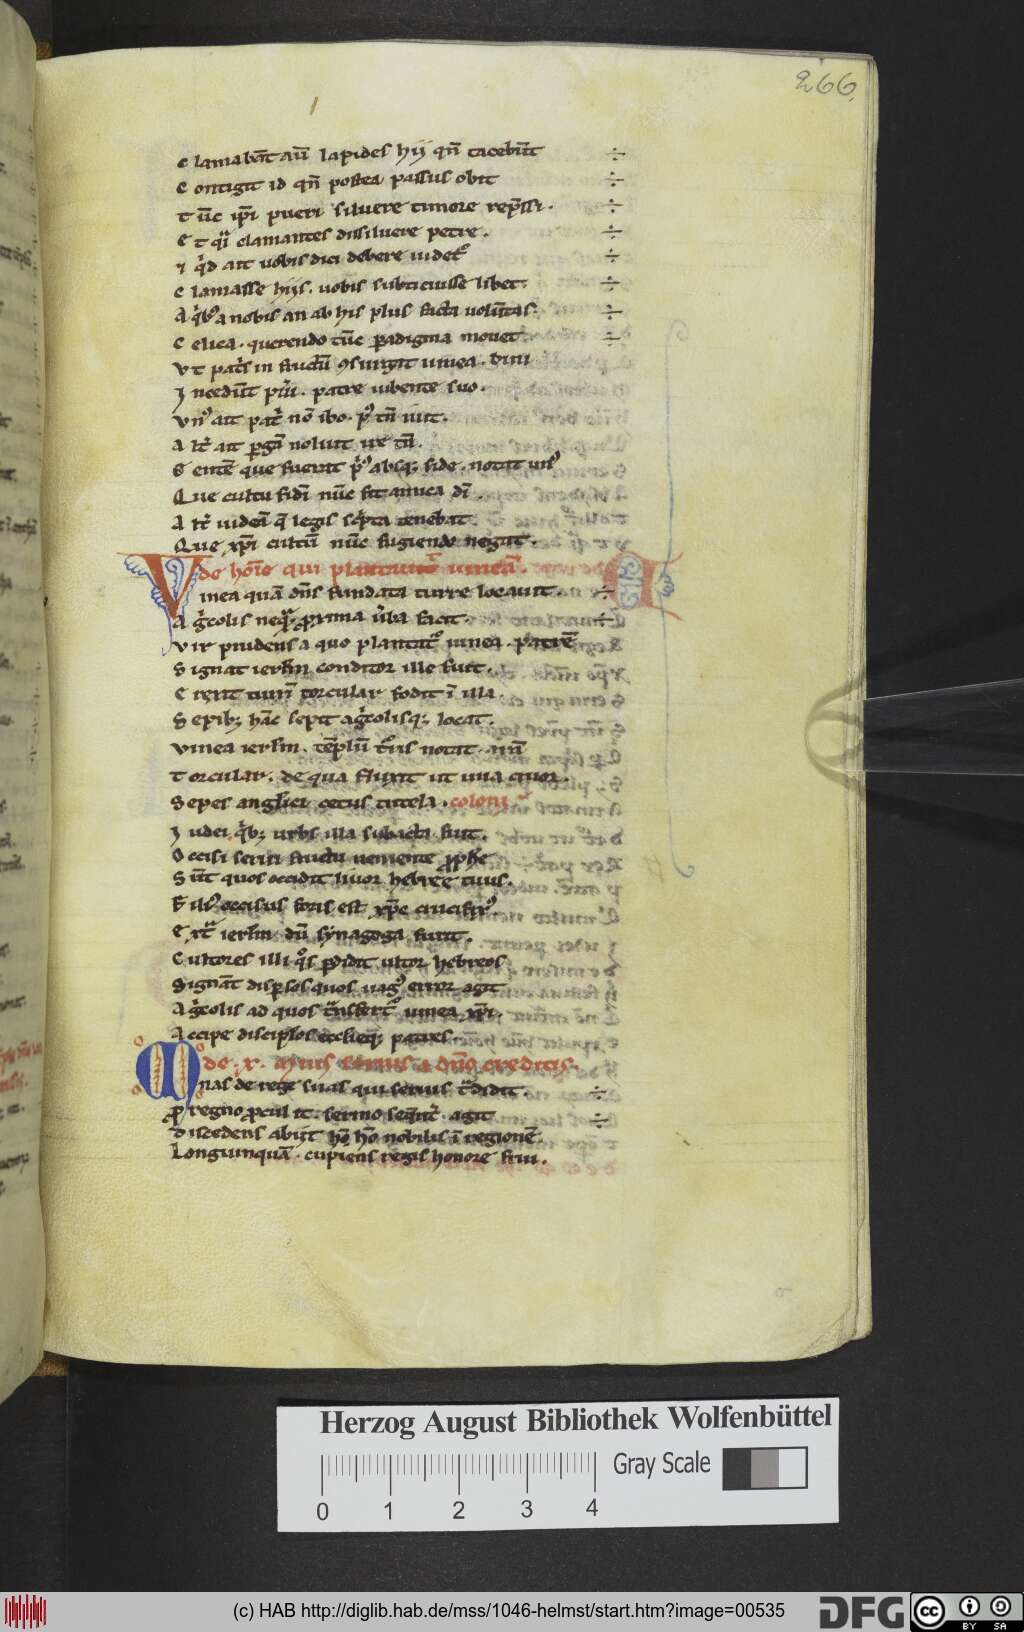 266
C lamabūt aū lapides hij qn̄ tacebūt
C ontigit id qn̄ postea passus obit
t ūc ip̄i pueri siluere timore rep̄ssi.
E t qͥ clamantes dissiluere petre.
C lamasse hijs. uobis subticuisse libet.
A qͥb; a nobis an ab his plus facta uolūtas.
C elica. querendo tūc paradigma mouet.
I ncedūt pͥri. patre iubente suo.
vnꝰ ait pat̄ nō ibo. pꝰ tn̄ iuit.
A lt̄ ait pgā noluit ire tn̄.
G entē que fuerat pͥꝰ absq; fide. notat unꝰ
Que cultu fidī nūc fit amica dī.
A lt̄ iudeā q̄ legis scͥpta tenebat
Que xp̄i cultū nūc fugiendo negat.
de hoīe qui plantauit uineā.
V inea quā dn̄s fundata turre locauit.
A gͥcolis neqͣ; proxima ūba facit.
vir prudens a quo plantatͬ uinea. patrē
S ignat ierlm̄ conditor ille fuit.
E rexit turrī torcular fodit ī illa.
S epib; hāc sepit agͥcolisq; locat.
vinea ierlm̄. tēplū tͬris notat. arā
T orcular. de qua fluxit ut uua cruor.
S epes anglici cetus tutela. coloni
I udei qͥb; urbs illa subacta fuit.
O ccisi serui fructū ueniente pph̄e
S ūt quos occidit liuor hebree tuus.
F ilꝰ occisus foris est xp̄e crucifixꝰ.
E xtͣ ierlm̄ dū synagoga furit.
C ultores illi qͦs pdidit ultor hebreos
S ignāt dispsos quos uagꝰ error agit
A gͥcolis ad quos tͣnsfertͬ uinea xp̄i.
A ccipe discipłos ecclieq; patres
de .x. mnis seruis a dn̄o creditis.
M nas de rege suas qui seruis tͣdidit.
p regno pcul it. sermo seqͣntͬ. agit
D iscedens abijt hō nobilis ī regionē.
Longinquā. cupiens regis honore frui.
Herzog August Bibliothek Wolfenbüttel
Gray Scale
0 1 2 3 4
(c) HAB http://diglib.hab.de/mss/1046-helmst/start.htm?image=00535
DFG cc BY SA